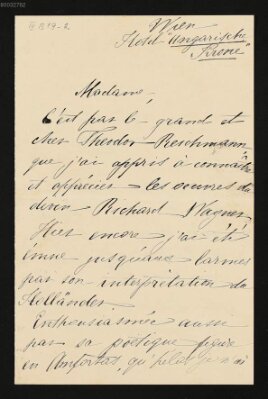 B0002762
Wien
Hotel "Ungarische
Krone"
Madame,
C'est par le grand et
cher Theodor Reichmann
que j'ai appris à connaître
et apprécier les œuvres du
divin Richard Wagner.
Hier encore j'ai été
émue jusqu'aux larmes
par son interprétation du
Holländer
Enthousiasmée aussi
par sa poétique figure
en Amfortas, qu'hélas je n'ai